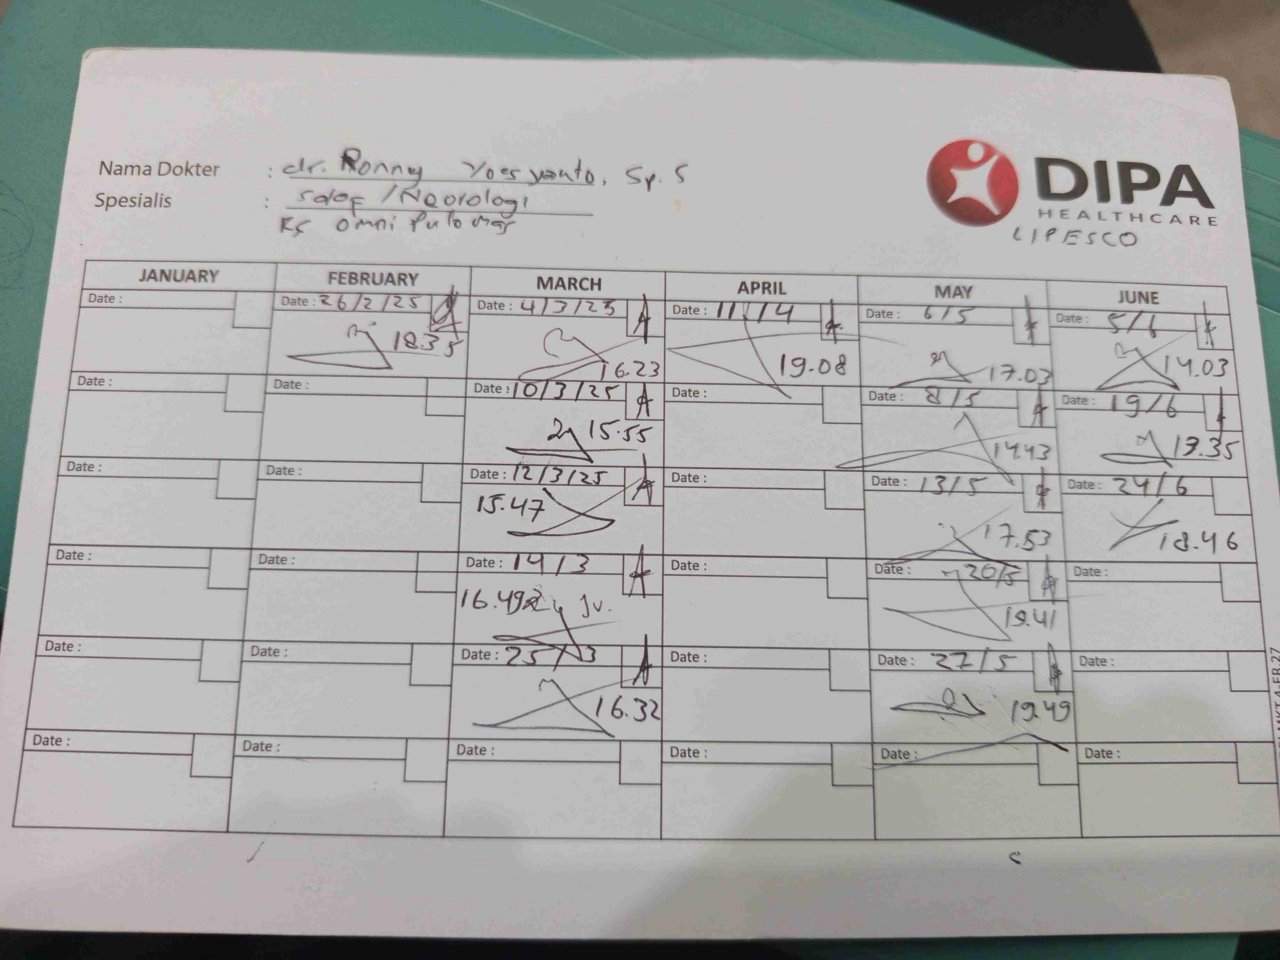 Nama Dokter : dr. Ronny Yoesyanto, Sp. S
Spesialis : Saraf / Neorologi
RS Omni Pulomas
DIPA
HEALTHCARE
LIPESCO
JANUARY FEBRUARY MARCH APRIL MAY JUNE
Date : Date : 26/2/25 Date : 4/3/25 Date : 11/4 Date : 6/5 Date : 5/6
18.35 16.23 19.08 17.03 14.03
Date : Date : Date : 10/3/25 Date : Date : 8/5 Date : 19/6
15.55 14.43 19.35
Date : Date : Date : 12/3/25 Date : Date : 13/5 Date : 24/6
15.47 17.53 18.46
Date : Date : Date : 14/3 Date : Date : 20/5 Date :
16.49 19.41
Date : Date : Date : 25/3 Date : Date : 27/5 Date :
16.32 19.49
Date : Date : Date : Date : Date : Date :